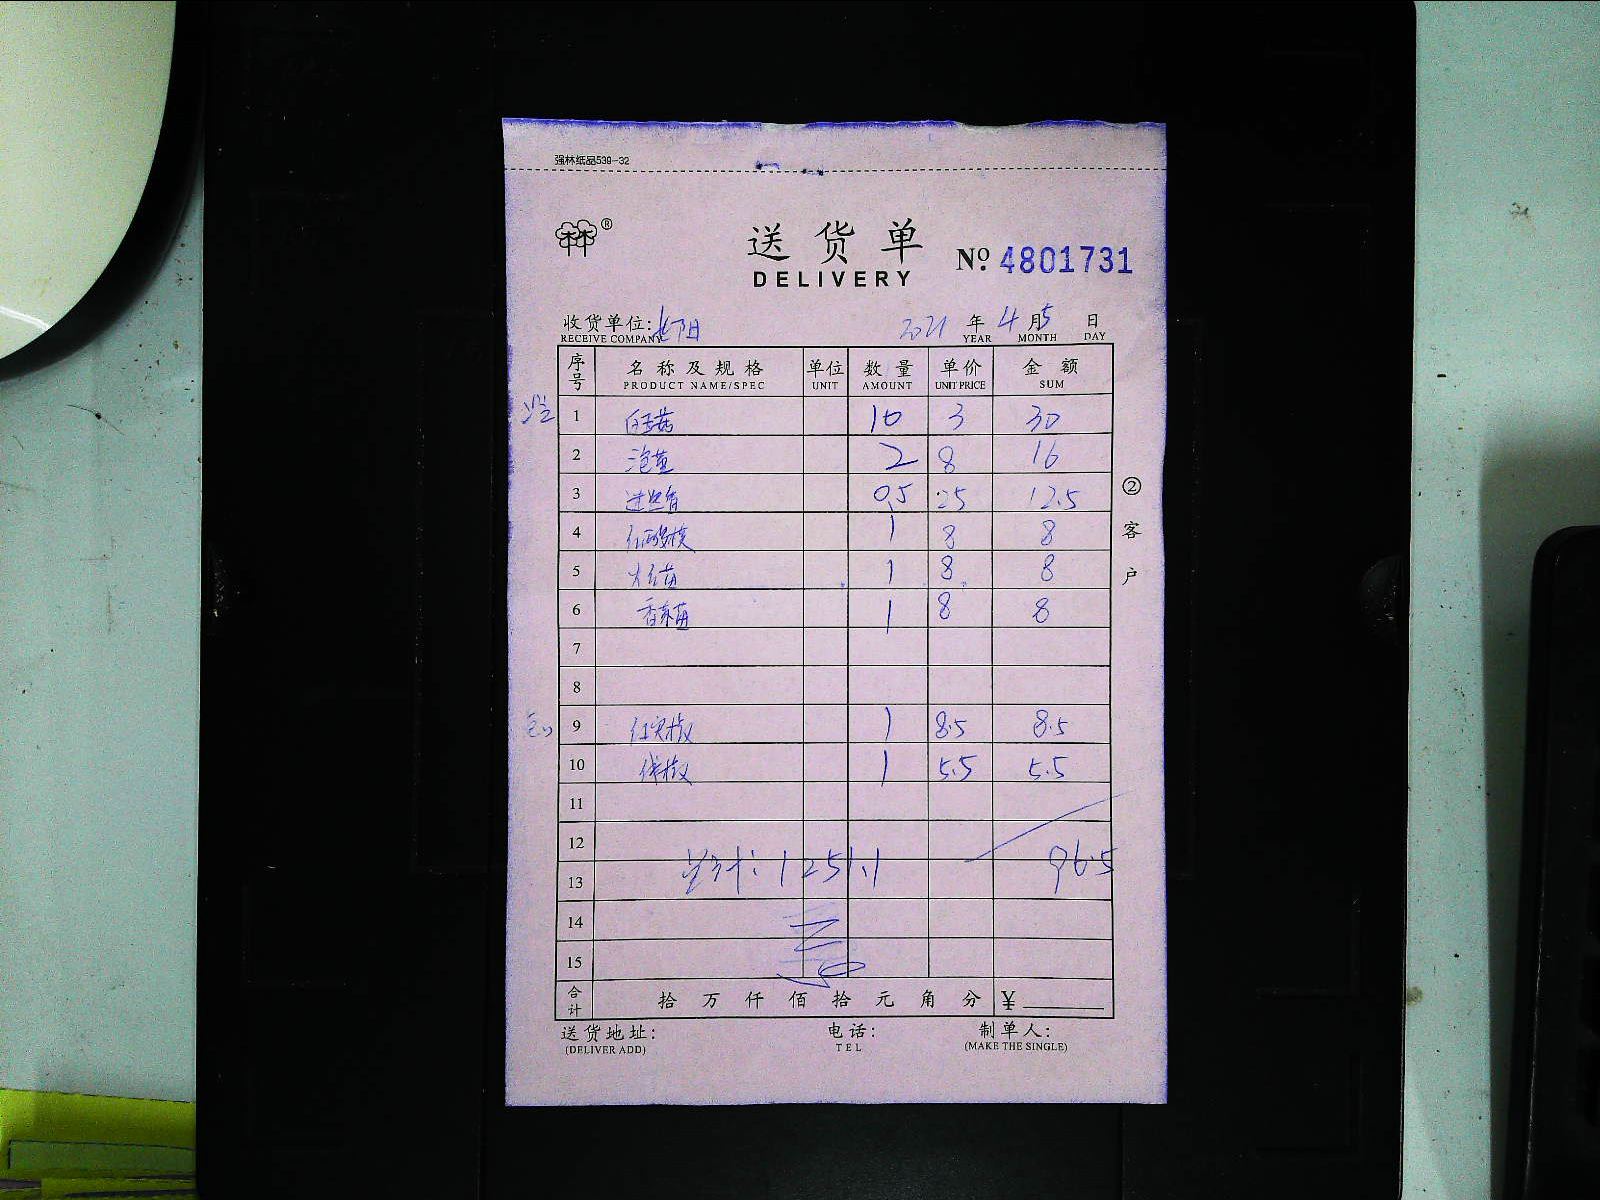 强林纸品539-32
®
送货单
DELIVERY
№ 4801731
收货单位:
RECEIVE COMPANY
2021 年 4 月 5 日
YEAR MONTH DAY
序号 名称及规格 单位 数量 单价 金额
PRODUCT NAME/SPEC UNIT AMOUNT UNIT PRICE SUM
1 白玉菇 10 3 30
2 2 8 16
3 0.5 25 12.5
4 1 8 8
5 1 8 8
6 1 8 8
7
8
9 红尖椒 1 8.5 8.5
10 1 5.5 5.5
11
12
总计:1251.1 96.5
13
14
15
合计 拾万仟佰拾元角分 ¥
送货地址: 电话: 制单人:
(DELIVER ADD) TEL (MAKE THE SINGLE)
②客户